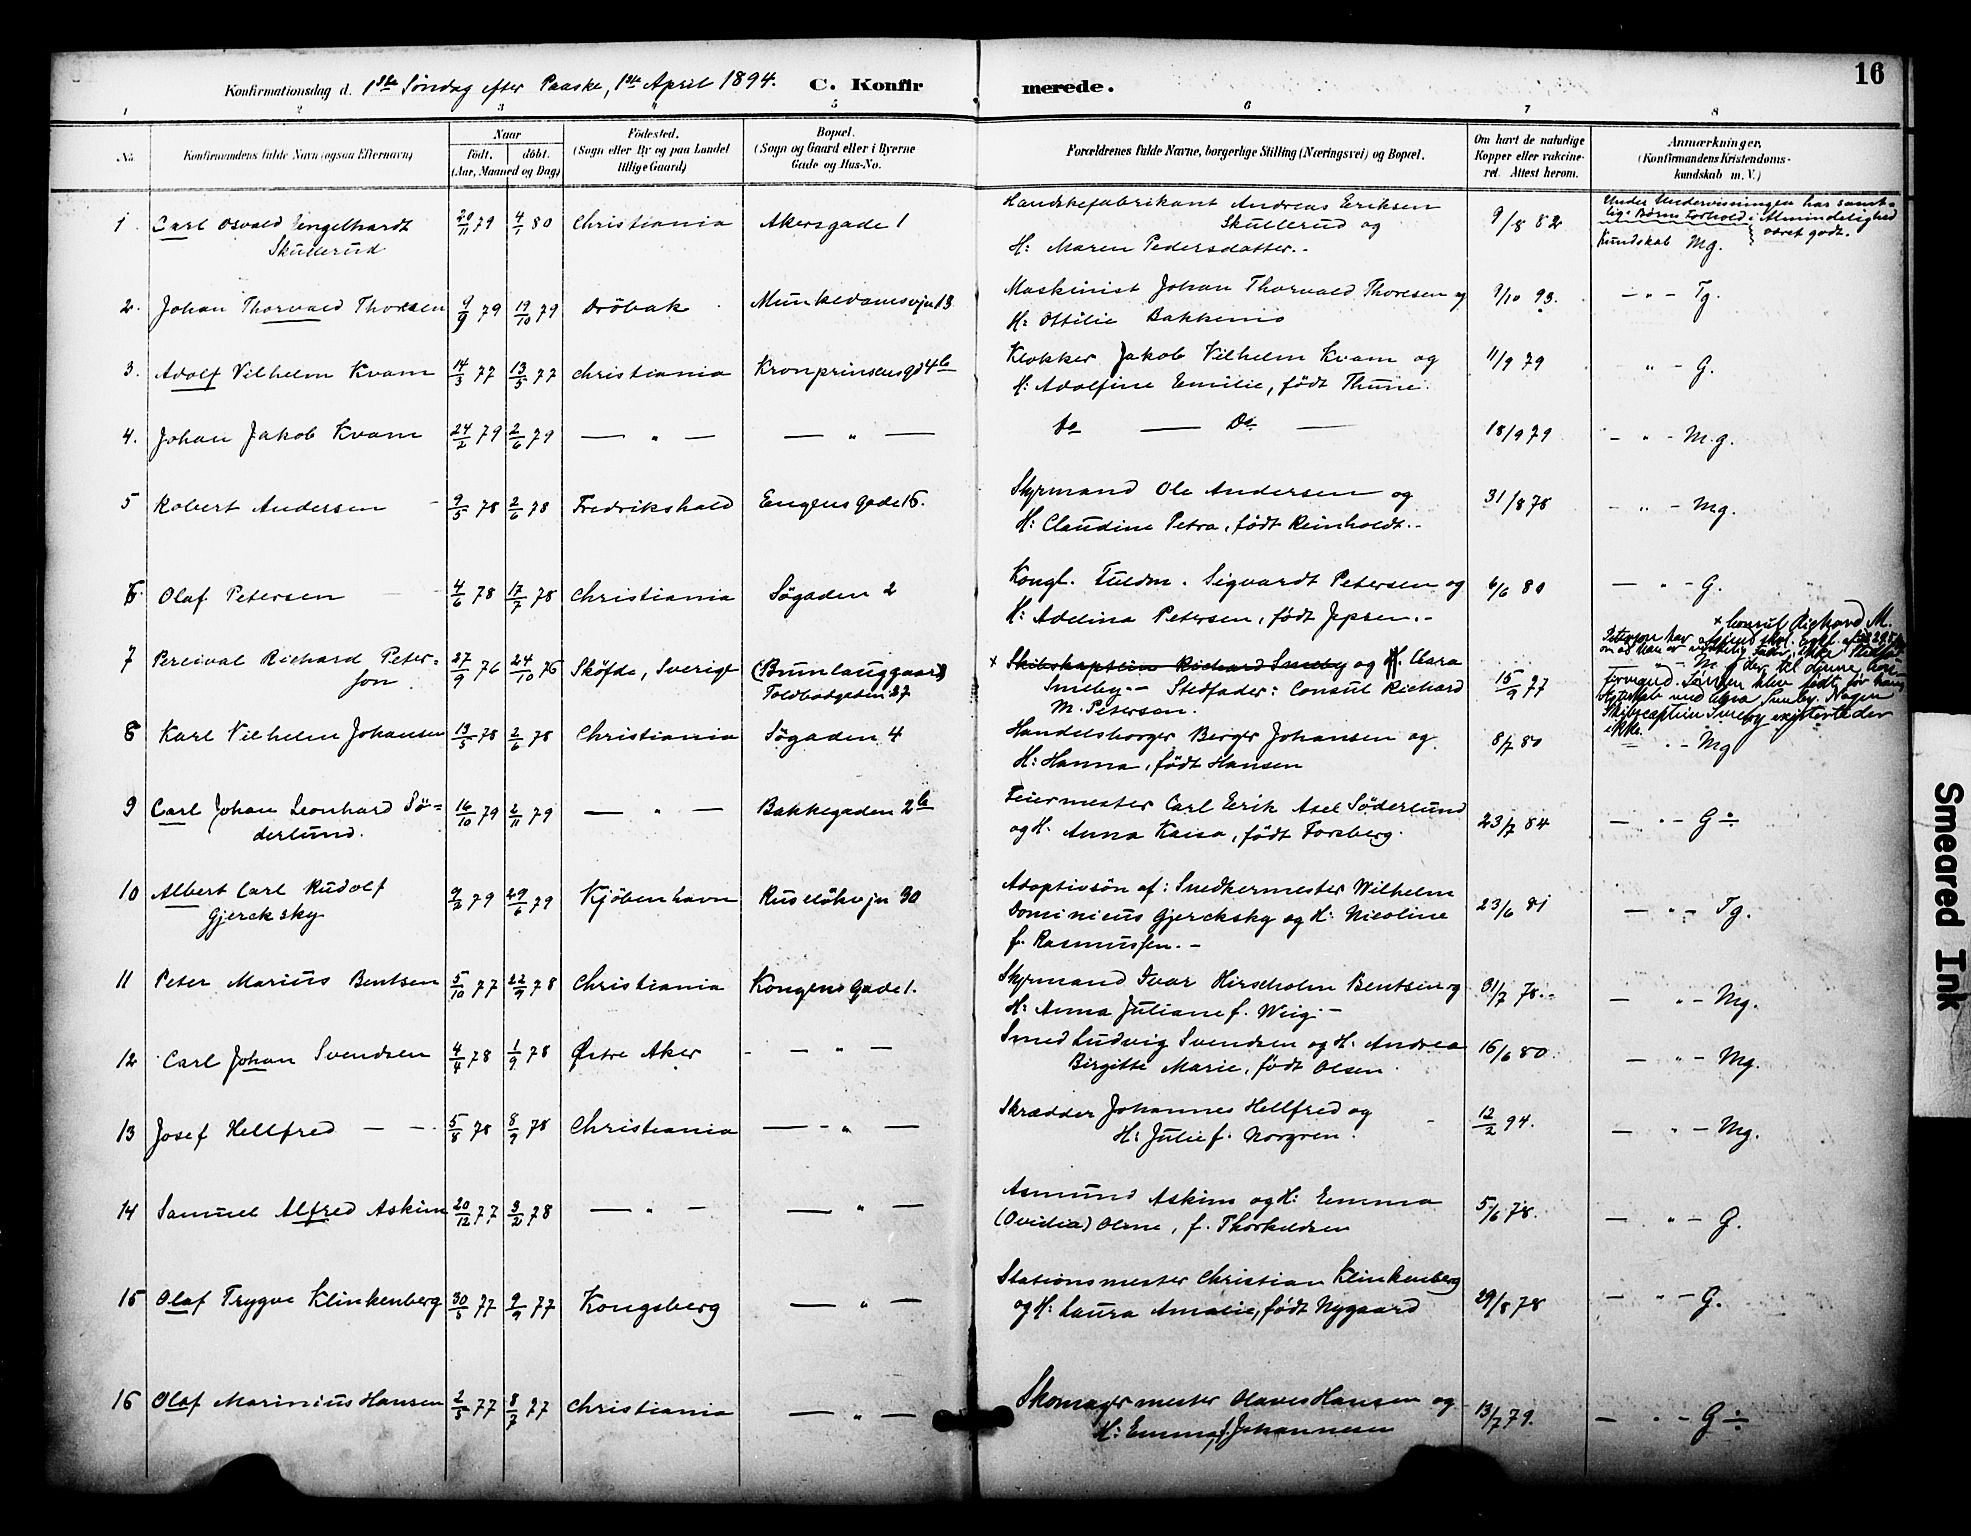 16
Konfirmationsdag d. 1ste Søndag efter Paaske, 1ste April 1894. C. Konfirmerede.
1 2 3 4 5 6 7 8
No. Konfirmandens fulde Navn (ogsaa Efternavn) Naar født. døbt. (Aar, Maaned og Dag) Fødested. (Sogn eller By og paa Landet tillige Gaard) Bopæl. (Sogn og Gaard eller i Byerne Gade og Hus-No. Forældrenes fulde Navne, borgerlige Stilling (Næringsvei) og Bopæl. Om havt de naturlige Kopper eller vakcineret. Attest herom. Anmærkninger, (Konfirmandens Kristendomskundskab m. V.)
1 Carl Osvald Engelhardt Skullerud 20/11 79 4/1 80 Christiania Akersgade 1 Handskefabrikant Andreas Eriksen Skullerud og H: Maren Pedersdatter.- 9/8 82 Under Undervisningen har samtlige Børns Forhold i Almindelighed været godt. Kundskab Mg.
2. Johan Thorvald Thoresen 9/9 79 19/10 79 Drøbak Munkedamsvjn 13 Maskinist Johan Thorvald Thoresen og H: Ottilie Bakkenio 9/10 93. — " — Tg.
3. Adolf Vilhelm Kvam 14/3 77 13/5 77 Christiania Kronprinsensgd 4b Klokker Jakob Vilhelm Kvam og H: Adolfine Emilie, født Thune. 11/9 79 " — G.
4. Johan Jakob Kvam 24/2 79 2/6 79 — " — — " — do — Do — 18/9 79 — " — M.g.
5 Robert Andersen 9/5 78 2/6 78 Fredrikshald Engensgade 16. Styrmand Ole Andersen og H: Claudine Petra, født Reinholdt.- 31/8 78 — " — Mg.
6. Olaf Petersen 4/6 78 17/7 78 Christiania Søgaden 2 Kongl. Fuldm. Sigvardt Petersen og H: Adelina Petersen, født Jepsen.- 6/6 80 — " — G.
7 Percival Richard Peterson 27/9 76 24/10 76 Skøfde, Sverige (Brunlauggaard) Toldbodgaden 37 × Skibskaptein Richard Smeby og H. Clara Smeby.- Stedfader: Consul Richard M. Peterson. 15/9 77 × Consul Richard M. Peterson har
8 Karl Vilhelm Johansen 13/5 78 2/6 78 Christiania Søgaden 4 Handelsborger Berger Johansen og H: Hanna, født Hansen 8/7 80 — " — Mg
9 Carl Johan Leonhard Søderlund. 16/10 79 2/11 79 — " — Bakkegaden 2b Feiermester Carl Erik Axel Søderlund og H. Anna Kaisa, født Forsberg. 23/7 84 — " — G ÷
10 Albert Carl Rudolf Gjercksky 9/2 79 29/6 79 Kjøbenhavn Ruseløkvjn 30 Adoptivsøn af: Snedkermester Wilhelm Dominicus Gjercksky og H: Nicoline f. Rasmussen.- 23/6 81 — " — Tg.
11 Peter Marius Bentsen 5/10 77 22/9 78 Christiania Kongens gade 1. Styrmand Ivar Hirscholm Bentsen og H: Anna Juliane f. Wiig.- 31/7 78.- — " — Mg.
12 Carl Johan Svendsen 4/4 78 1/9 78 Østre Aker — " — Smed Ludvig Svendsen og H. Andrea Birgitte Marie, født Olsen 16/6 80. — " — Mg.
13 Josef Hellfred — — 5/8 78 8/9 78 Christiania — " — Skrædder Johannes Hellfred og H: Julie f. Norgren. 12/2 94. — " — Mg.
14 Samuel Alfred Askim 20/12 77 3/2 78 — " — — " — Asmund Askim og H: Emma (Ovidia) Oline, f. Thorkildsen 5/6 78. — " — G.
15 Olaf Trygve Klinkenberg 30/5 77 9/9 77 Kongsberg — " — Stationsmester Christian Klinkenberg og H: Laura Amalie, født Nygaard 29/8 78 — " — G.
16 Olaf Marinius Hansen 2/5 77 8/7 77 Christiania — " — Skomagermester Olaves Hansen og H: Emma f. Johannesen 13/7 79. — " — G ÷
Smeared Ink